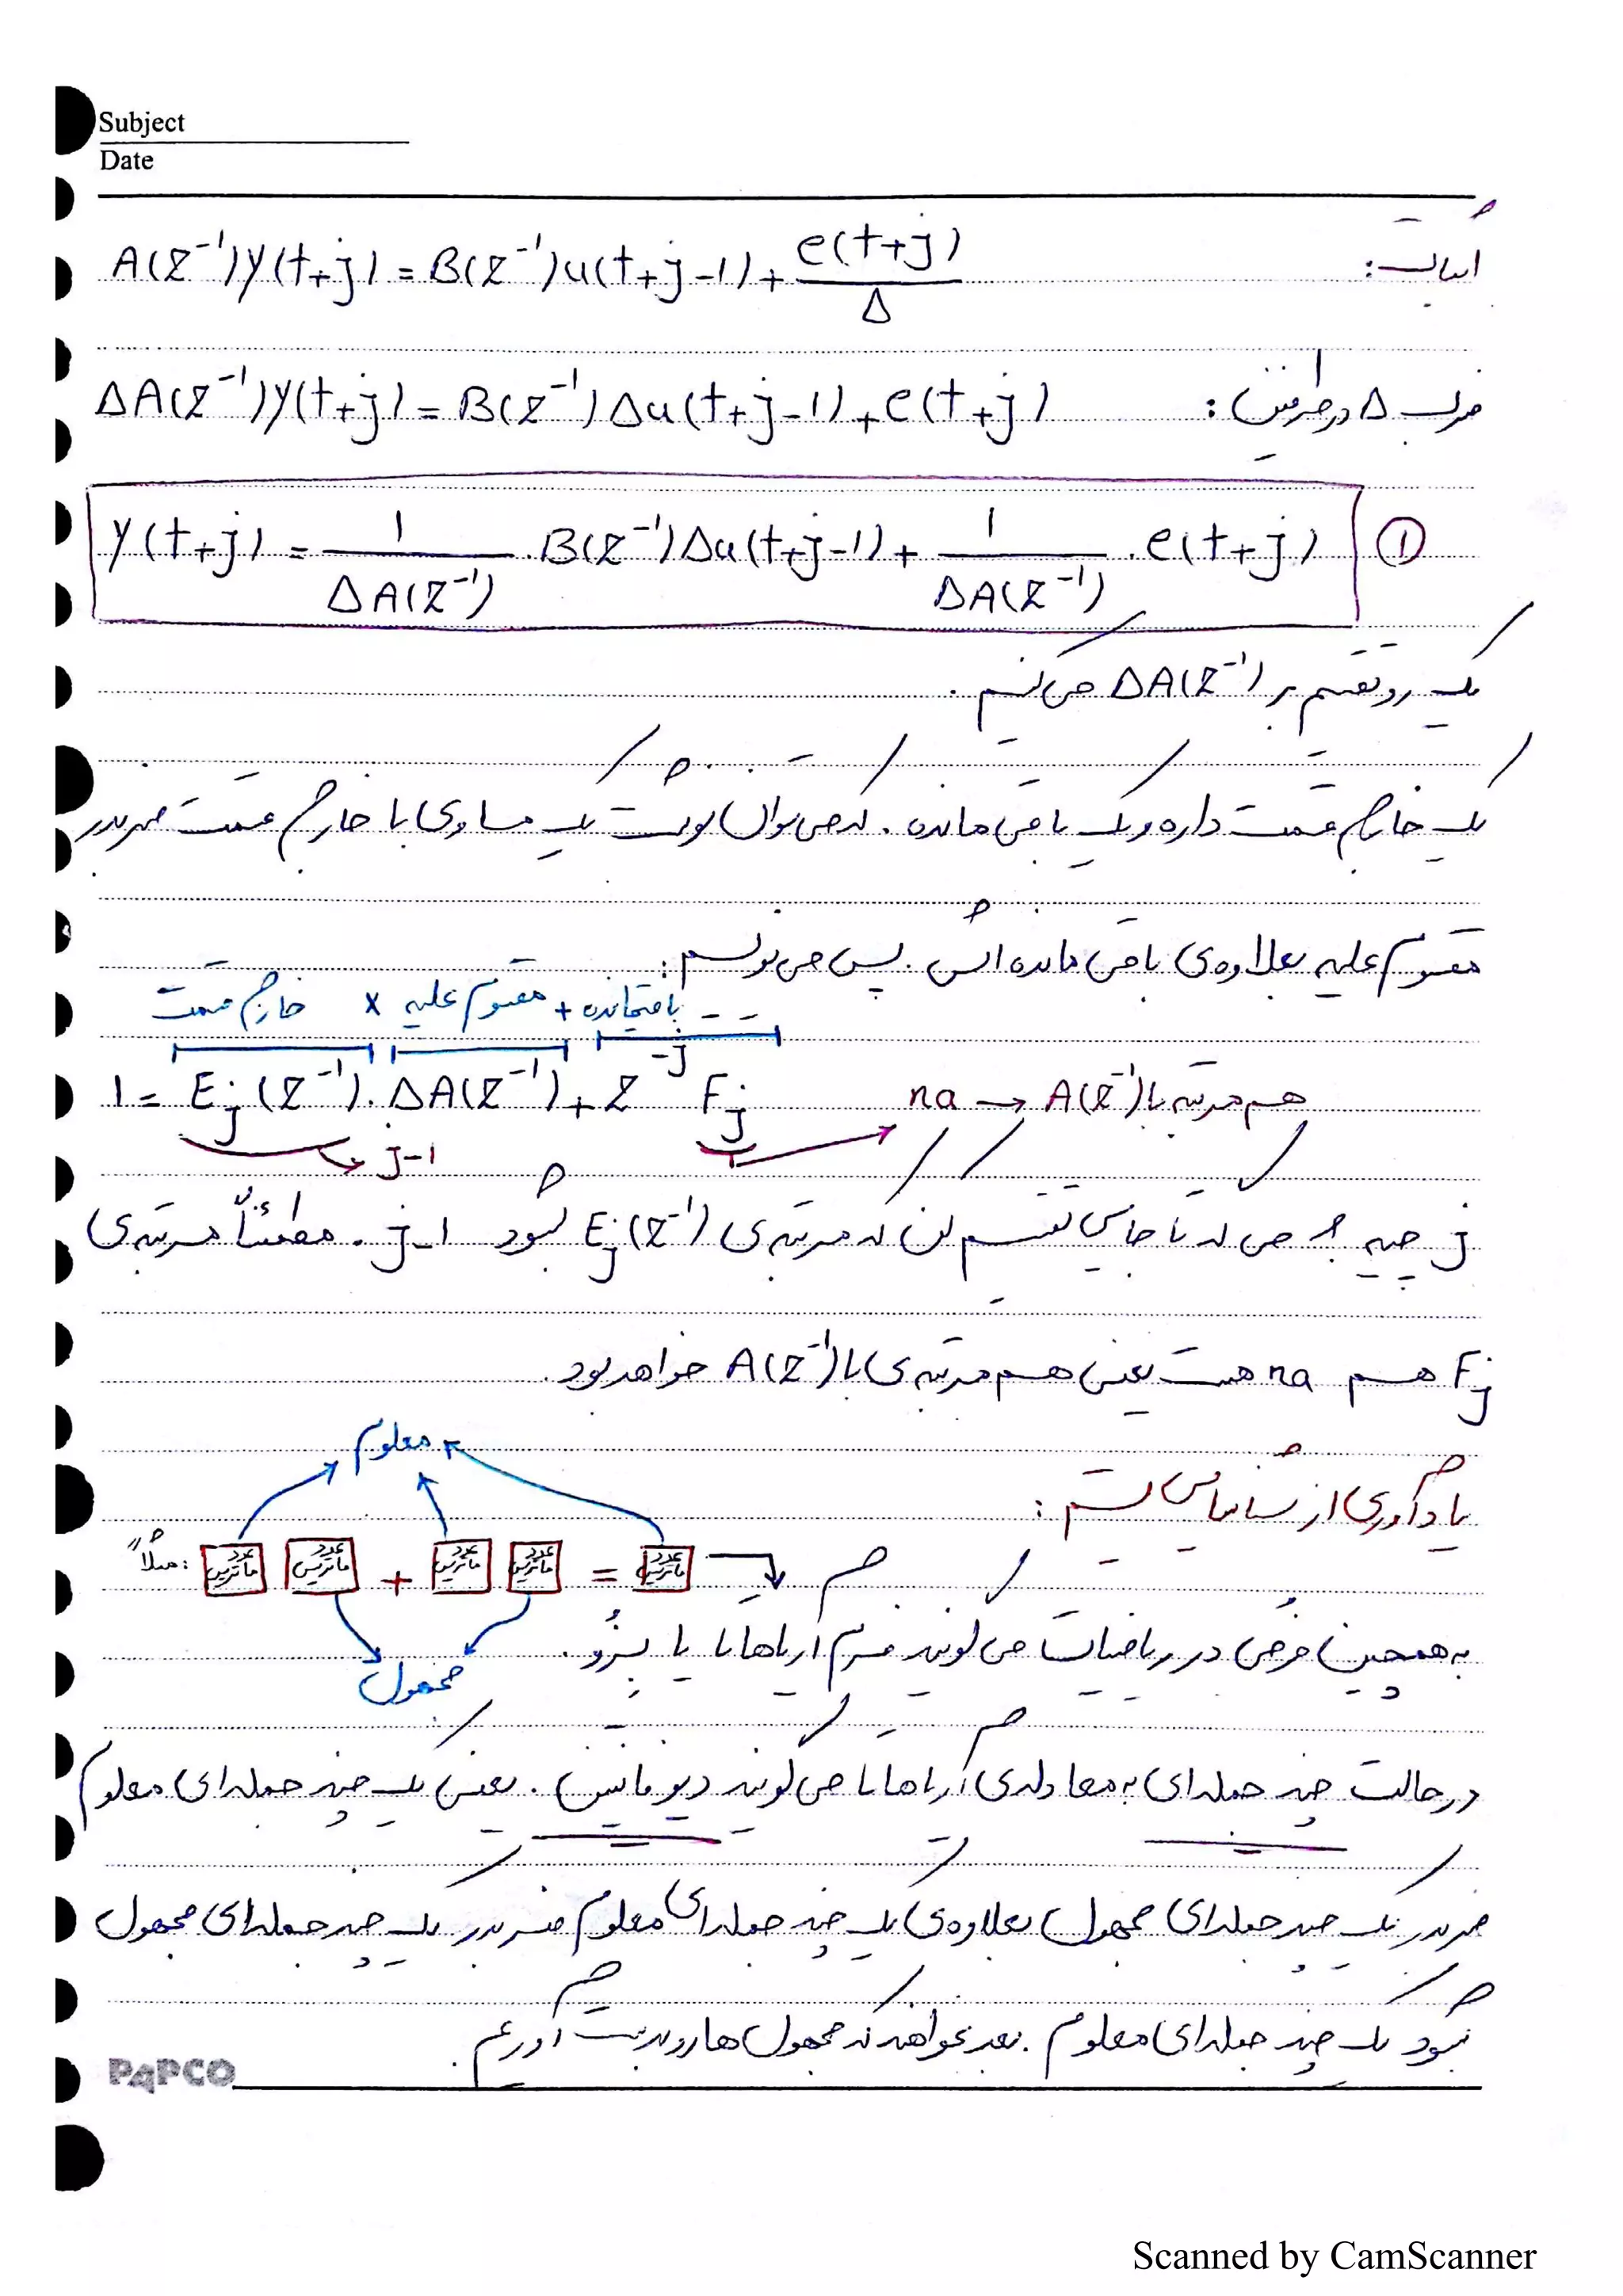 Subject
Date
اثبات:
A(Z⁻¹)y(t+j) = B(Z⁻¹)u(t+j-1) + e(t+j)/Δ
ضرب Δ در طرفین:
ΔA(Z⁻¹)y(t+j) = B(Z⁻¹)Δu(t+j-1) + e(t+j)
y(t+j) = 1/ΔA(Z⁻¹) . B(Z⁻¹)Δu(t+j-1) + 1/ΔA(Z⁻¹) . e(t+j) ①
یک رو تقسیم بر ΔA(Z⁻¹) می کنیم .
یک خارج قسمت داره و یک باقی مانده . که می توان نوشت یک مساوی با خارج قسمت ضربدر
مقسوم علیه بعلاوه ی باقی مانده اش . پس می نویسیم :
خارج قسمت × مقسوم علیه + باقیمانده
1 = Ej(Z⁻¹) . ΔA(Z⁻¹) + Z⁻ʲ Fj
j-1
na → A(Z⁻¹) هم مرتبه با
j چیه می که تا جایی تقسیم کن که مرتبه ی Ej(Z⁻¹) بشود j-1 . مطمئناً مرتبه ی
Fj هم na هست یعنی هم مرتبه ی با A(Z⁻¹) خواهد بود .
یادآوری از شناسایی سیستم :
معلوم
مثلاً : عدد ماتریس عدد ماتریس + عدد ماتریس عدد ماتریس = عدد ماتریس
به همچین فرمی در ریاضیات می گویند فرم آریاهاتا یا بزو .
مجهول
در حالت چند جمله ای به معادله ی آریاهاتا می گویند دیوفانتین . یعنی یک چند جمله ای معلوم
ضربدر یک چند جمله ای مجهول بعلاوه ی یک چند جمله ای معلوم ضربدر یک چند جمله ای مجهول
بشود یک چند جمله ای معلوم . بعد بخواهند که مجهول ها رو بدست آوریم .
PAPCO
Scanned by CamScanner